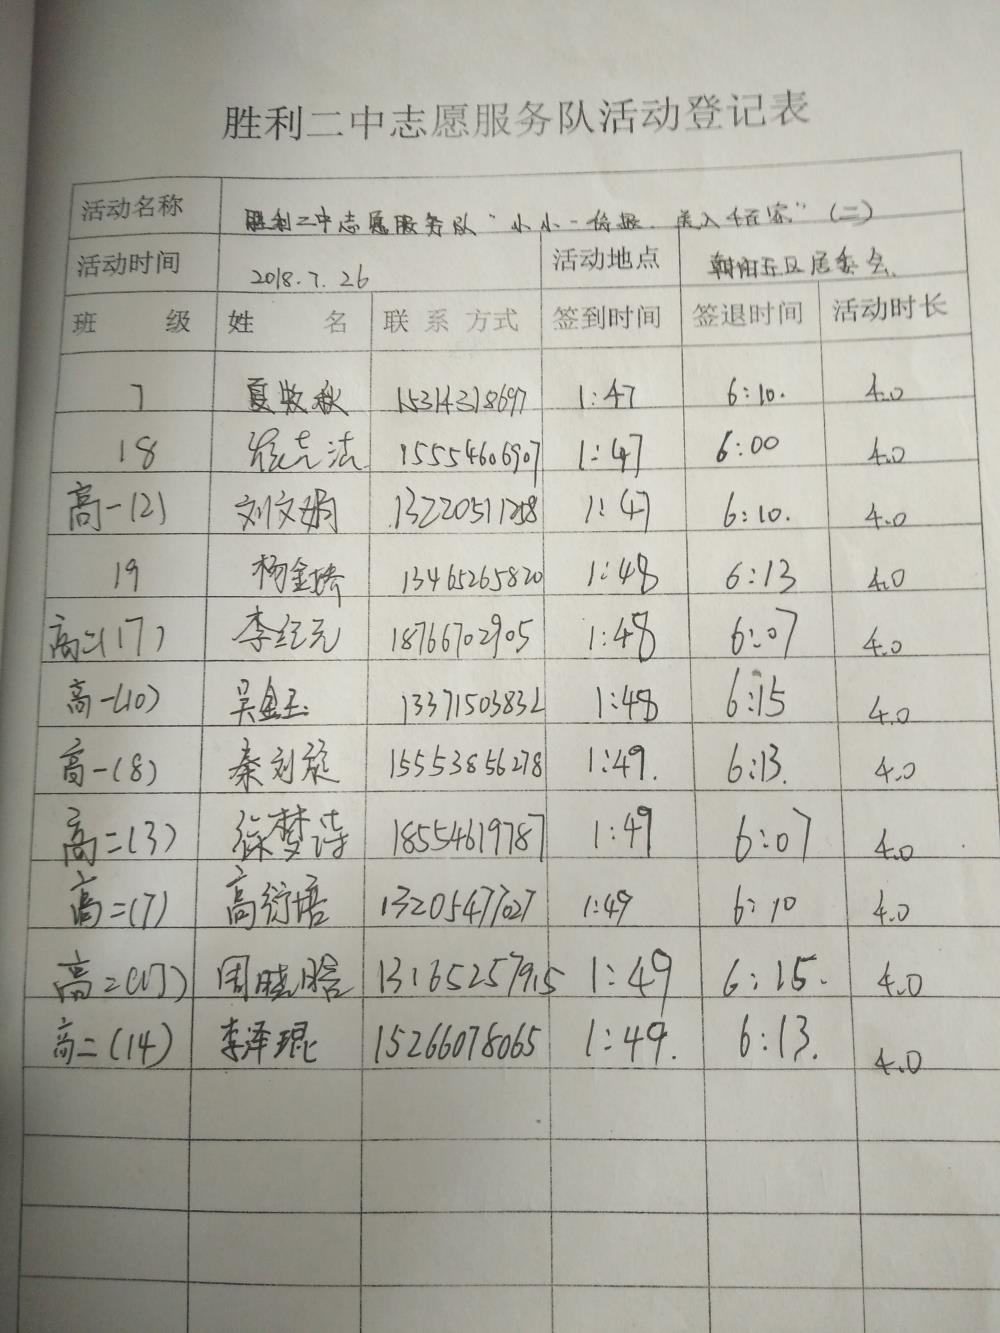 胜利二中志愿服务队活动登记表
活动名称 胜利二中志愿服务队“小小一份报，关入千百家”（二）
活动时间 2018.7.26 活动地点 朝阳五区居委会
班 级 姓 名 联系方式 签到时间 签退时间 活动时长
7 夏牧秋 15314318697 1:47 6:10. 4.0
18 徐志洁 15554606907 1:47 6:00 4.0
高一(2) 刘文娟 1:47 6:10. 4.0
19 杨金 13465265820 1:48 6:13 4.0
高二(17) 李纪元 18766702905 1:48 6:07 4.0
高一(10) 吴金玉 13371503832 1:48 6:15 4.0
高一(8) 秦刘旋 15553856278 1:49. 6:13. 4.0
高二(3) 徐梦诗 18554619787 1:49 6:07 4.0
高二(7) 高衍培 13205477027 1:49 6:10 4.0
高二(17) 周晓晗 13165257915 1:49 6:15. 4.0
高二(14) 李泽琨 15266078065 1:49. 6:13. 4.0